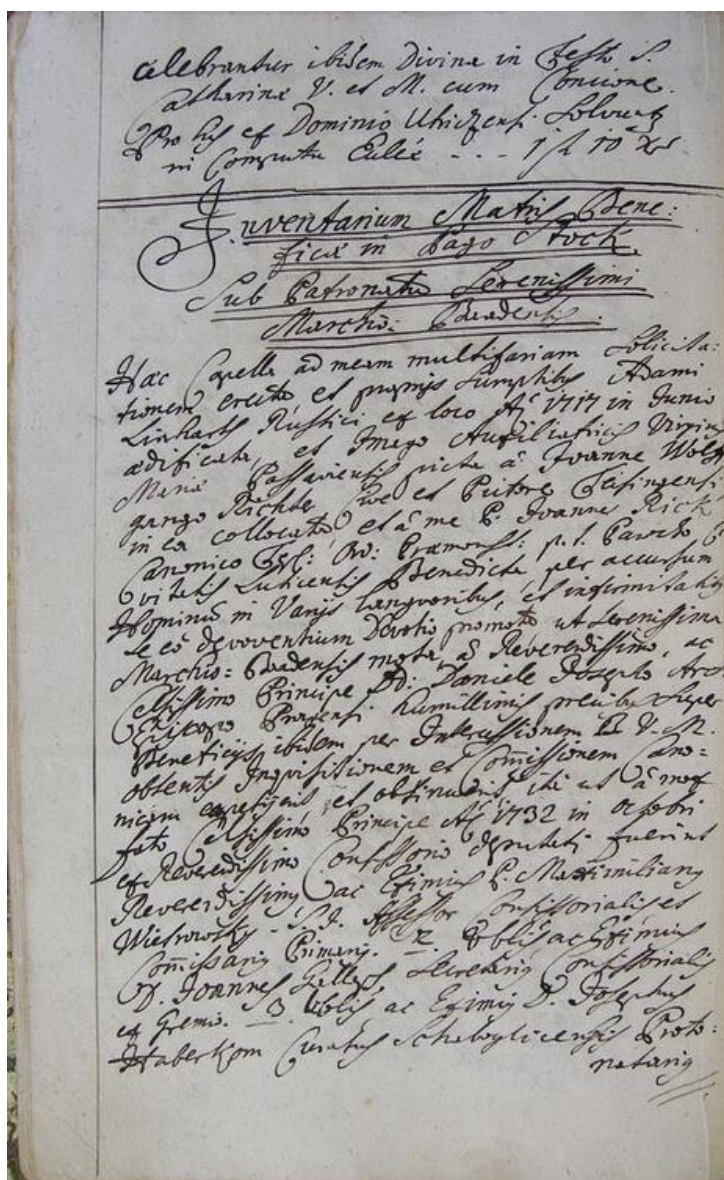 celebrantur ibidem Divina in Festo S.
Catharinæ V. et M. cum Concione.
Pro his ex Dominio Solvunt
in Computu Eccl͠æ - - - 1 fl 10 xr
Inventarium Matris Bene:
ficæ in Pago Stock
Sub Patronatu Serenissimi
Marchio: Baadensis.
Hæc Capella ad meam multifariam Solicita:
tionem erecta et proprijs Sumptibus Adami
Linharth Rustici ex loco Aõ 1717 in Junio
ædificata, et Imago Auxiliatricis Virginis
Mariæ Passaviensis picta â Joanne Wolf
gango Richter Cive et Pictore
in ea collocata, et â me P. Joanne Rick
Canonico Ord: Præmonst: p. t. Parocho C
vitatis Luticensis Benedicta, per accursum
Hominum in Varijs languoribus, et infirmitatibus
se eô devoventium Devotio promota ut Serenissima
Marchio: Badensis mota, â Reverendissimo, ac
Celsissimo Principe DD: Daniele Josepho Arch
Episcopo Pragensi humillimis precibus Super
Beneficijs ibidem per Intercessionem B V. M.
obtentis Inquisitionem et Com̃issionem Cano=
nicam expetijerit, et obtinuerit, ita ut â
fato Celsissimo Principe Aõ 1732 in octobri
ex Reverendissimo Consistorio deputati fuerint
Reverendissimus ac Eximius P. Maximilianus
Wietrowsky - S. J. Assessor Consistorialis et
Com̃issarius Primarius. 2. ac Eximius
D. Joannes Secretarius Consistorialis
ex Gremio. 3. ac Eximius D. Josephus
Curatus Proto:
notarius